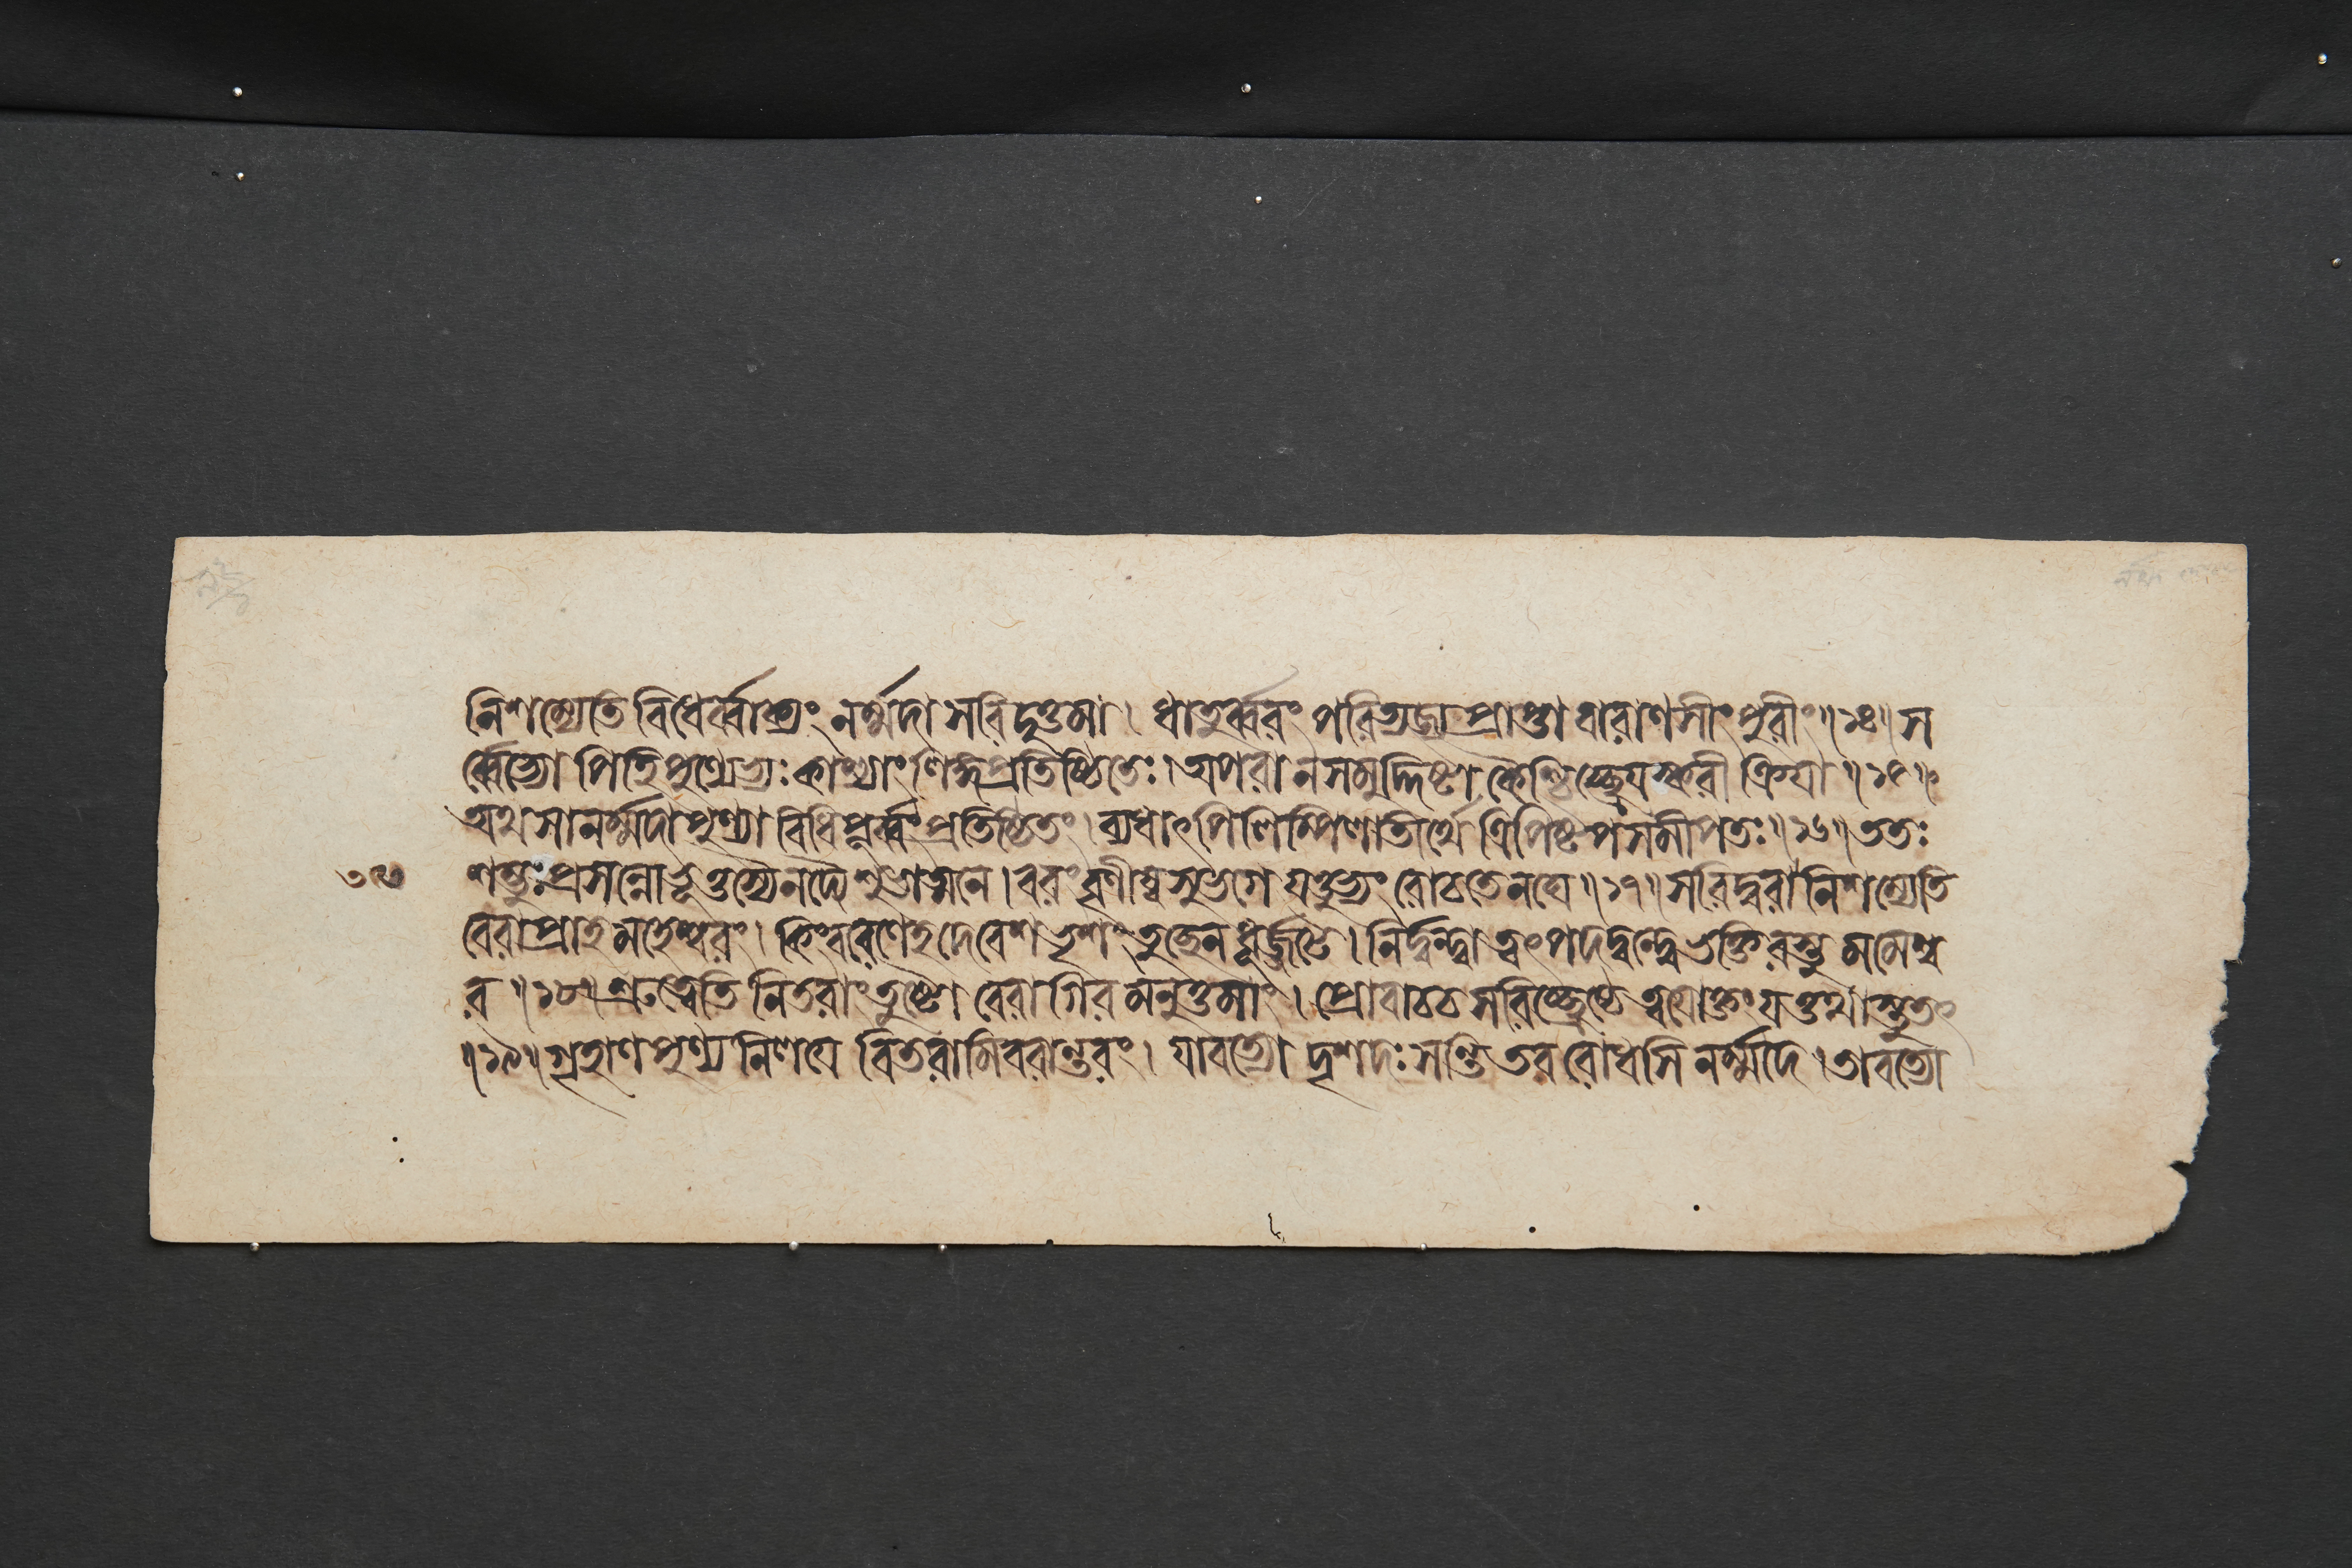 নিশম্যেতি বিধের্ব্বাক্যং নর্ম্মদা সরিদুত্তমা। ধাতুর্ব্বরং পরিত্যজ্য প্রাপ্তা বারাণসীং পুরীং॥১৪॥স
র্ব্বেভ্যো পিহি পুণ্যেভ্যঃ কাশ্যাং লিঙ্গপ্রতিষ্ঠিতেঃ। অপরা ন সমুদ্দিষ্টা কৈশ্চিচ্ছ্রেয়স্করী ক্রিয়া॥১৫॥
অথ সা নর্ম্মদা পুণ্যা বিধিপূর্ব্বং প্রতিষ্ঠিতং। ব্যধাৎ পিলিপ্পিলাতীর্থে ত্রিপিষ্টপসমীপতঃ॥১৬॥ ততঃ
শম্ভুঃ প্রসন্নো ভূত্তস্যৈ নদ্যৈ শুভাত্মনে। বরং বৃণীষ্ব সুভগে যত্তুভ্যং রোচতেনঘে॥১৭॥ সরিদ্বরা নিশম্যেতি
রেবা প্রাহ মহেশ্বরং। কিং বরেণেহ দেবেশ ভৃশং তুচ্ছেন ধূর্জ্জটে। নির্দ্বন্দ্বা ত্বৎপদদ্বন্দ্বে ভক্তিরস্তু মমেশ্ব
র॥১৮॥ শ্রুত্বেতি নিতরাং তুষ্টো রেবাগিরমনুত্তমাং। প্রোবাচ চ সরিচ্ছ্রেষ্ঠে ত্বয়োক্তং যত্তথাস্তু তৎ
॥১৯॥ গৃহাণ পুণ্যনিলয়ে বিতরামি বরান্তরং। যাবত্যো দৃশদঃ সন্তি তব রোধসি নর্ম্মদে। তাবত্যো